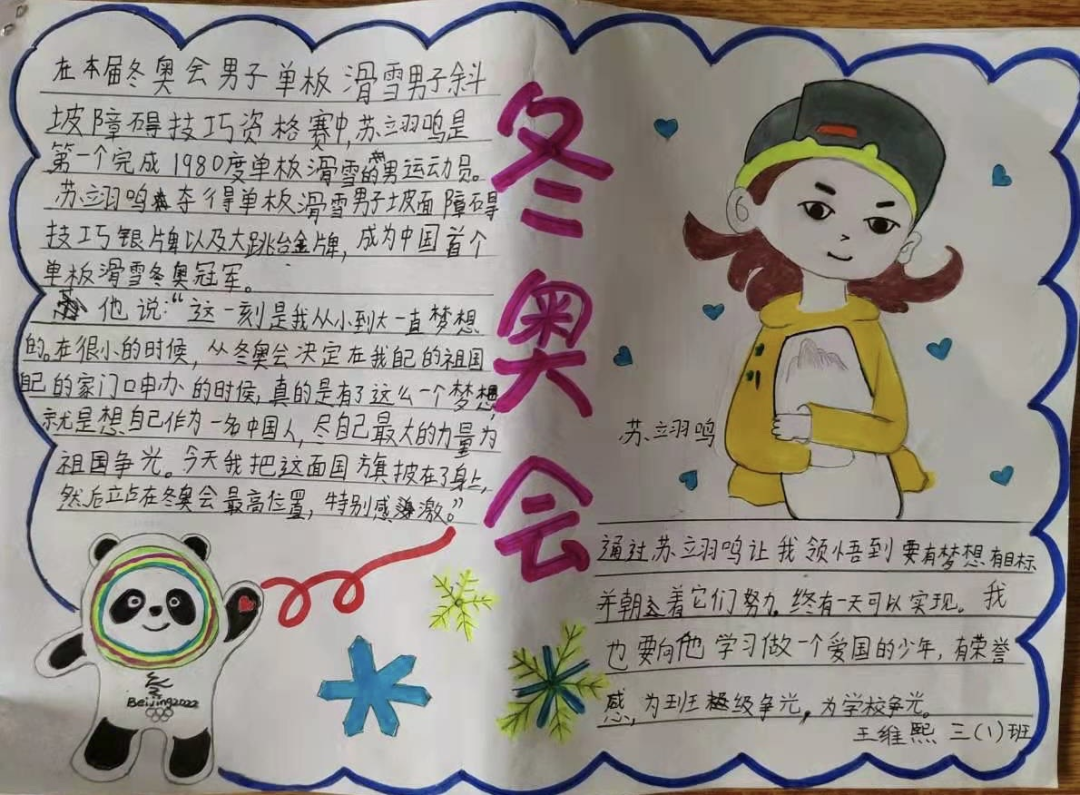 在本届冬奥会男子单板滑雪男子斜
坡障碍技巧资格赛中,苏翊鸣是
第一个完成1980度单板滑雪的男运动员。
苏翊鸣夺得单板滑雪男子坡面障碍
技巧银牌以及大跳台金牌,成为中国首个
单板滑雪冬奥冠军。
他说:“这一刻是我从小到大一直梦想
的。在很小的时候,从冬奥会决定在我自己的祖国
自己的家门口申办的时候,真的是有了这么一个梦想,
就是想自己作为一名中国人,尽自己最大的力量为
祖国争光。今天我把这面国旗披在了身上,
然后立点在冬奥会最高位置,特别感激。”
冬奥会
苏翊鸣
通过苏翊鸣让我领悟到要有梦想有目标
并朝着它们努力,终有一天可以实现。我
也要向他学习做一个爱国的少年,有荣誉
感,为班级争光,为学校争光。
王维熙 三(1)班
Beijing2022